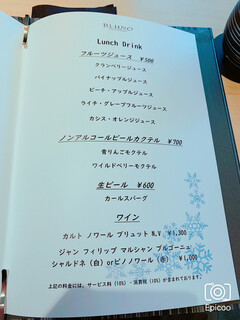 BLUNO
Lunch Drink
フルーツジュース ￥500
クランベリージュース
パイナップルジュース
ピーチ・アップルジュース
ライチ・グレープフルーツジュース
カシス・オレンジジュース
ノンアルコールビールカクテル ￥700
青りんごモクテル
ワイルドベリーモクテル
生ビール ￥600
カールスバーグ
ワイン
カルト ノワール ブリュット N.V ￥1,300
ジャン フィリップ マルシャン ブルゴーニュ
シャルドネ（白）orピノノワール（赤） ￥1,000
上記の料金には、サービス料（10%）・消費税（10%）が含まれております。
Epicoo